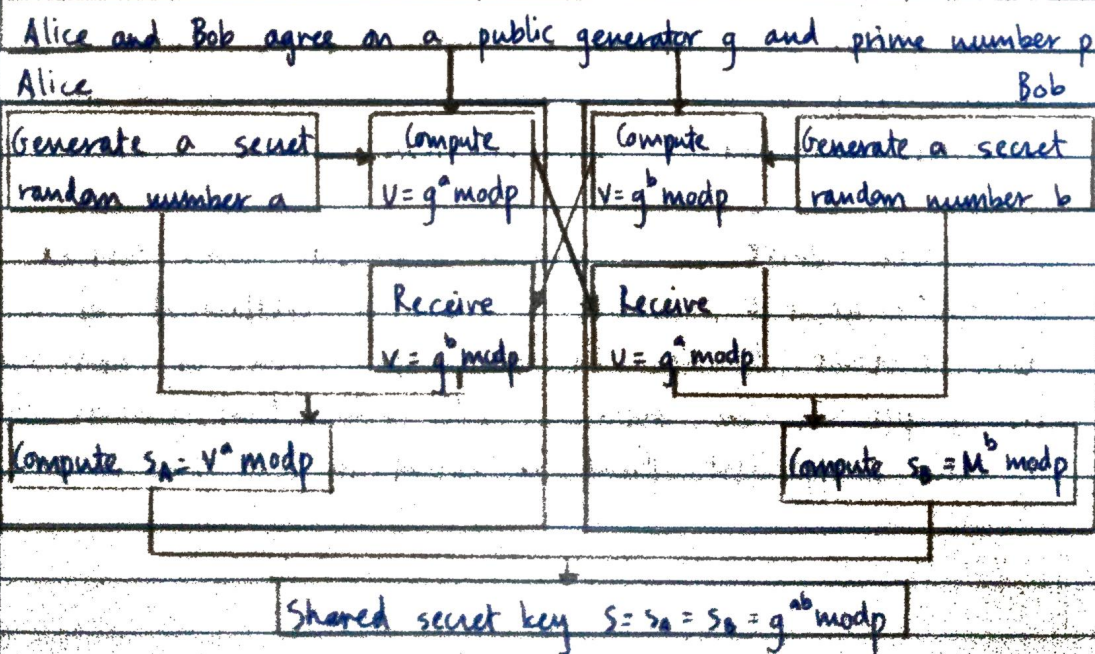 Alice and Bob agree on a public generator g and prime number p
Alice
Bob
Generate a secret
random number a
Compute
U = gᵃ mod p
Compute
V = gᵇ mod p
Generate a secret
random number b
Receive
V = gᵇ mod p
Receive
U = gᵃ mod p
Compute s_A = Vᵃ mod p
Compute s_B = Mᵇ mod p
Shared secret key S = s_A = s_B = gᵃᵇ mod p